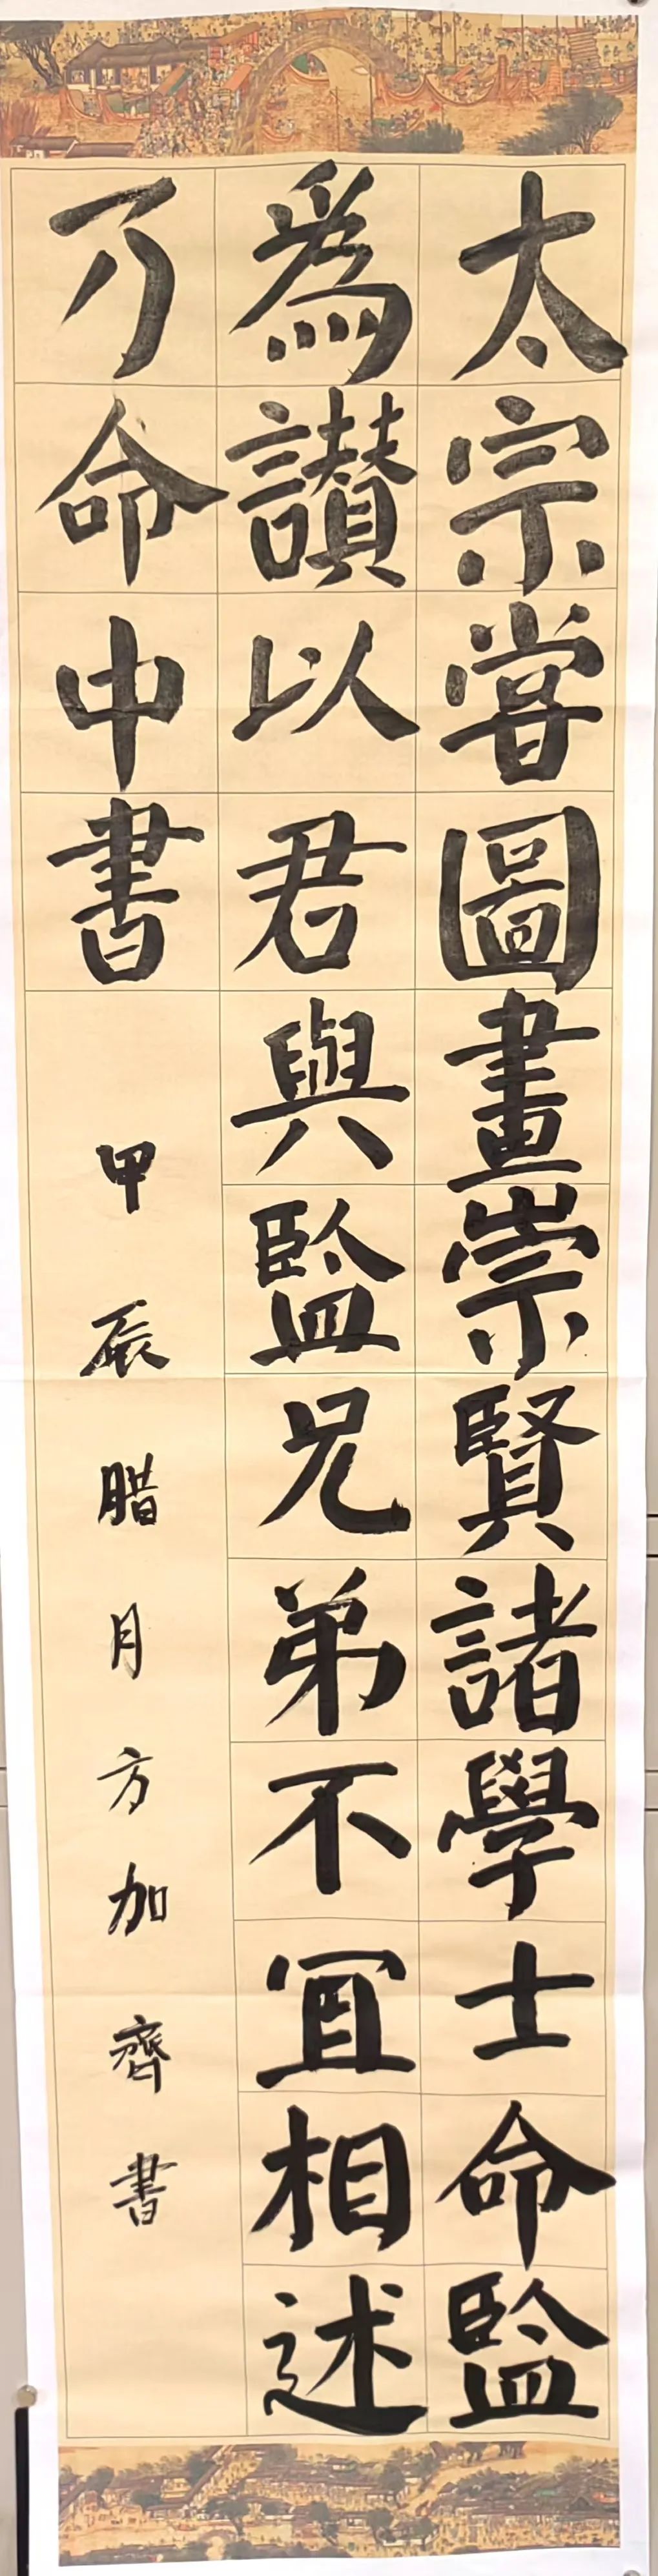 太宗嘗圖畫崇賢諸學士命監
為讃以君與監兄弟不宜相述
乃命中書
甲辰腊月方加齊書